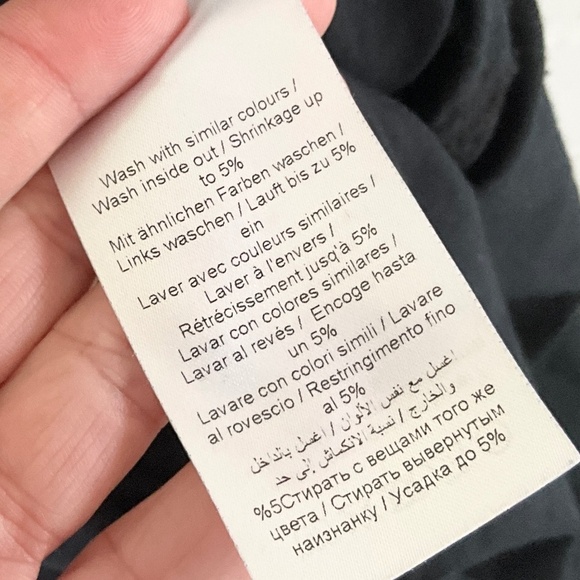 Wash with similar colours /
Wash inside out / Shrinkage up
to 5%
Mit ähnlichen Farben waschen /
Links waschen / Lauft bis zu 5%
ein
Laver avec couleurs similaires /
Laver à l'envers /
Rétrécissement jusqu'à 5%
Lavar con colores similares /
Lavar al revés / Encoge hasta
un 5%
Lavare con colori simili / Lavare
al rovescio / Restringimento fino
al 5%
اغسل مع نفس الألوان / اغسل بالداخل
والخارج / نسبة الانكماش إلى حد
%5Стирать с вещами того же
цвета / Стирать вывернутым
наизнанку / Усадка до 5%